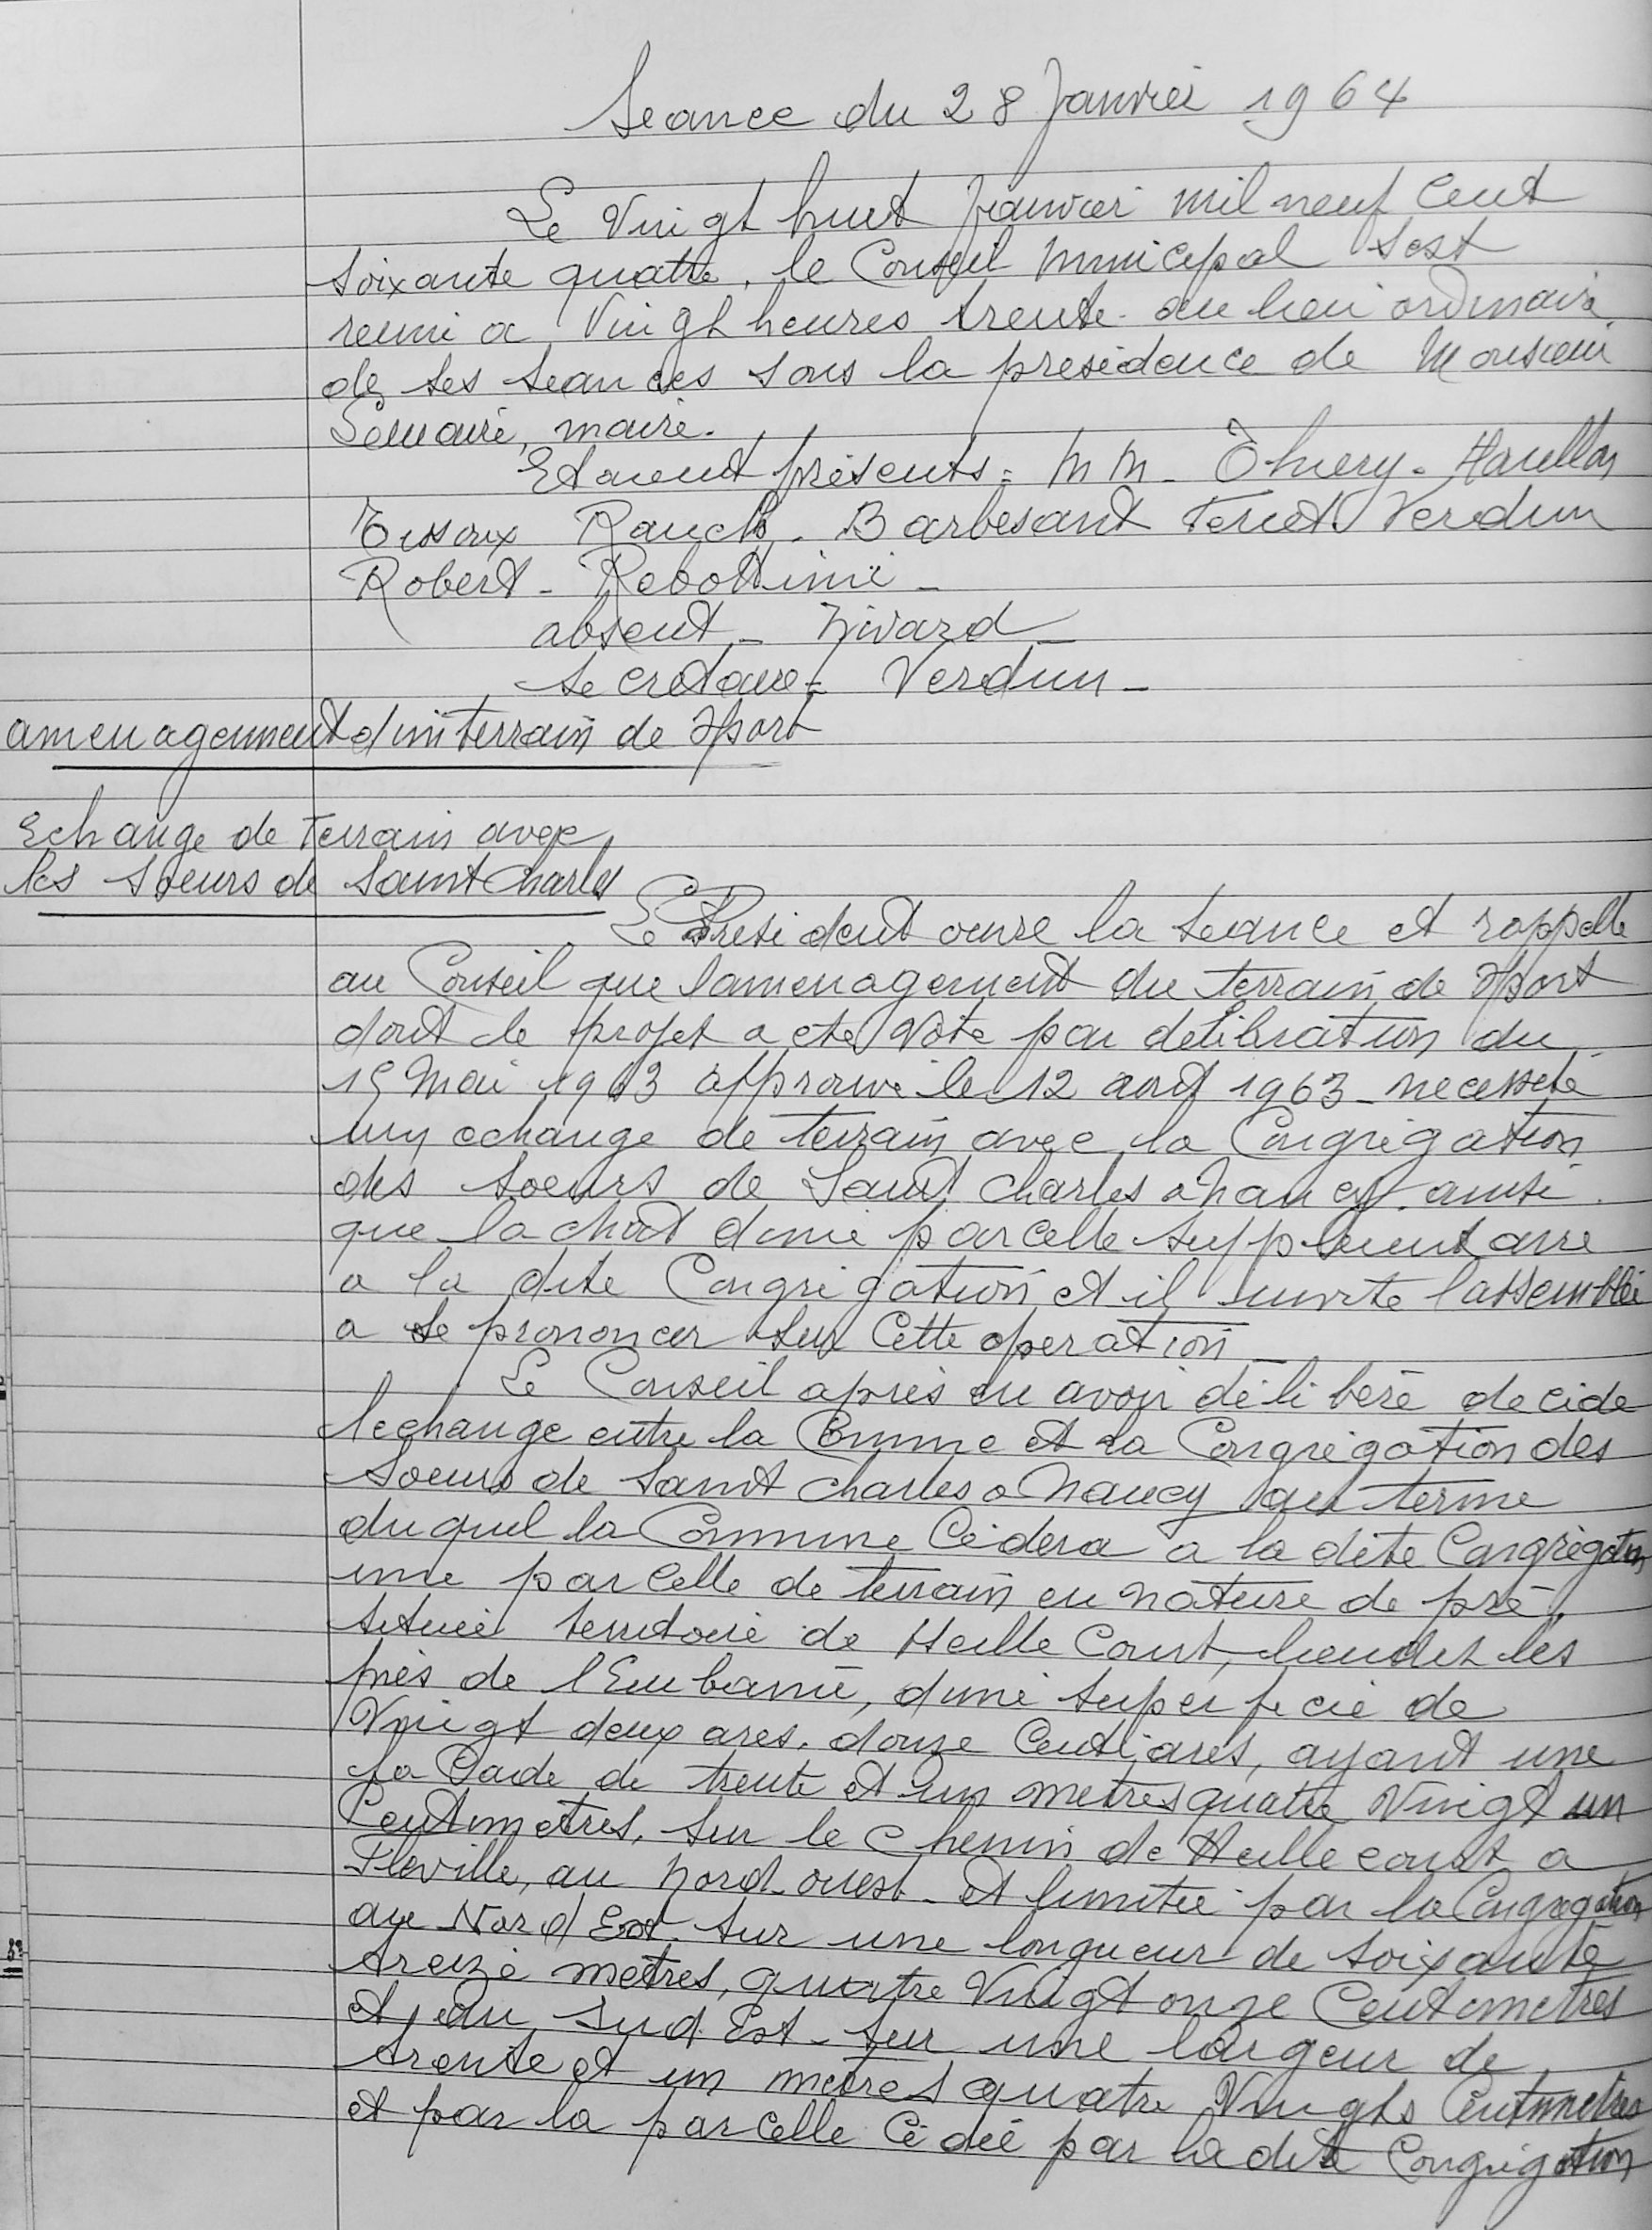 Seance du 28 Janvier 1964
Le Vingt huit Janvier mil neuf Cent
soixante quatre, le Conseil Municipal s'est
reuni a Vingt heures trente au lieu ordinaire
de ses seances sous la presidence de Monsieur
Lemaire, maire.
Etaient présents: MM. Thiery. Hanllon
Tissoux Rauch. Barbesant Ferret Verdun
Robert - Rebottinie -
absent - Nivard -
Secretaire - Verdun -
amenagement d'un terrain de sport
Echange de terrain avec
les soeurs de Saint Charles
Le President ouvre la seance et rappelle
au Conseil que lamenagement du terrain de sport
dont le projet a ete Voté par délibération du
15 Mai 1963 approuvé le 12 aout 1963 - necessite
un echange de terrain avec la Congrégation
des soeurs de Saint Charles a Nancy. ainsi
que lachat dune parcelle supplementaire
a la dite Congrégation et il invite lassemblée
a se prononcer sur Cette operation
Le Conseil après en avoir délibéré decide
lechange entre la Commune et la Congrégation des
Soeurs de Saint Charles a Nancy au terme
duquel la Commune Cédera a la dite Congrégation
une parcelle de terrain en nature de pré,
située territoire de Heillecourt, lieudit les
près de l'Embanie, dune superficie de
Vingt deux ares. douze Centiares, ayant une
façade de trente et un metres quatre Vingt un
Centimetres, sur le chemin de Heillecourt a
Fléville, au Nord-ouest - et limitée par la Congregation
au Nord Est sur une longueur de soixante
treize metres, quatre Vingt onze Centimetres
et au Sud Est - sur une largeur de
trente et un metres quatre Vingts Centimetres
et par la parcelle Cédée par la dite Congrégation